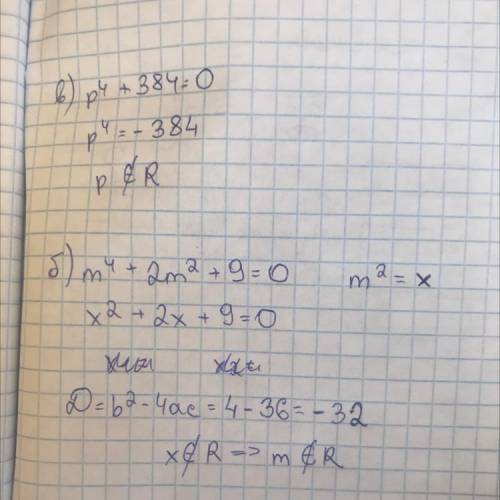 в) p⁴ + 384 = 0
p⁴ = - 384
p ∉ R
б) m⁴ + 2m² + 9 = 0 m² = x
x² + 2x + 9 = 0
D = b² - 4ac = 4 - 36 = - 32
x ∉ R => m ∉ R